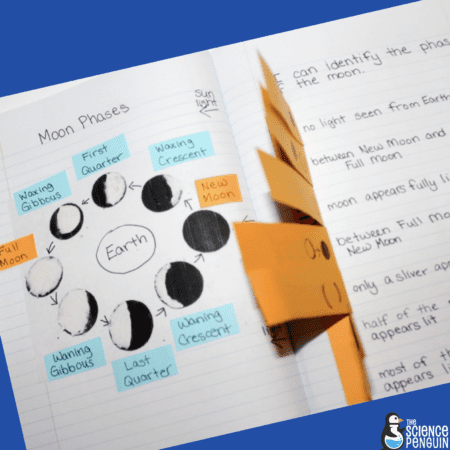 Moon Phases
Sun
light
First
Quarter
Waxing
Crescent
Waxing
Gibbous
New
Moon
Full
Moon
Earth
Waning
Gibbous
Last
Quarter
Waning
Crescent
can identify the phas
the moon.
no light seen from Earth
between New Moon and
Full moon
moon appears fully li
between Full mo
New Moon
only a sliver ap
half of the
appears lit
most of th
appears li
THE
SCIENCE
PENGUIN